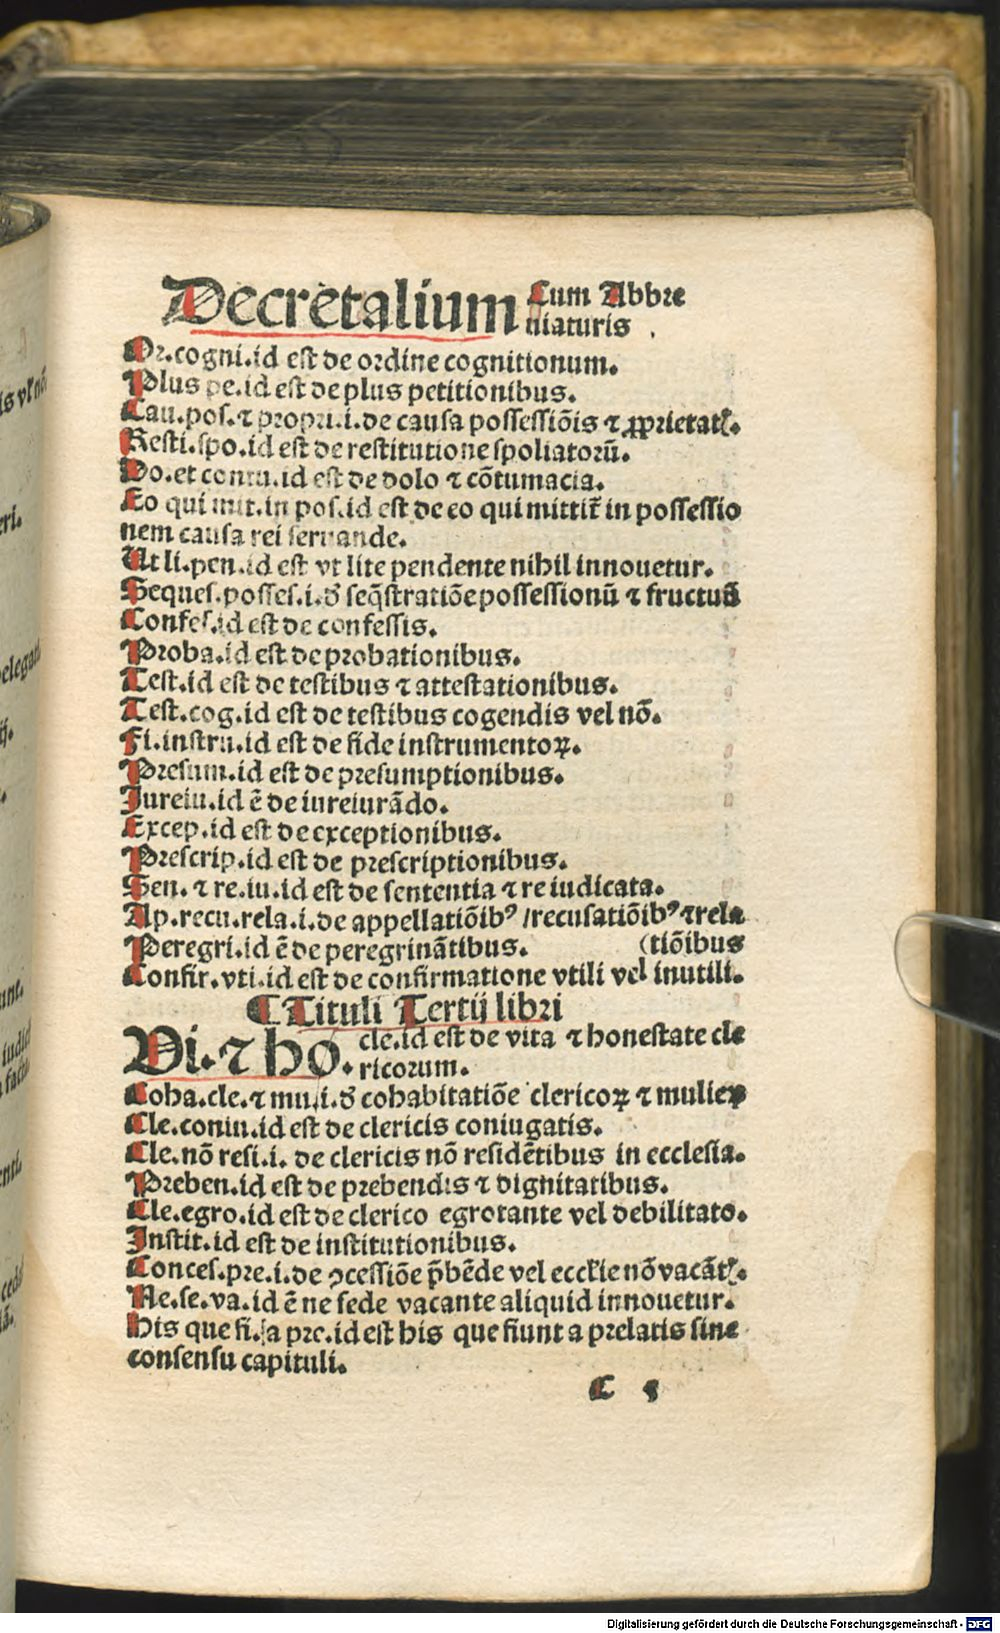 Decretalium Cum Abbre
uiaturis
Or.cogni.id est de ordine cognitionum.
Plus pe.id est de plus petitionibus.
Cau.pos.⁊ propri.i.de causa possessiõis ⁊ ꝓprietatꝭ.
Resti.spo.id est de restitutione spoliatorũ.
Do.et contu.id est de dolo ⁊ cõtumacia.
Eo qui mit.in pos.id est de eo qui mittit̃ in possessio
nem causa rei seruande.
Ut li.pen.id est vt lite pendente nihil innouetur.
Seques.posses.i.d̃ seq̃stratiõe possessionũ ⁊ fructuũ
Confes.id est de confessis.
Proba.id est de probationibus.
Test.id est de testibus ⁊ attestationibus.
Test.cog.id est de testibus cogendis vel nõ.
Fi.instru.id est de fide instrumentoꝝ.
Presum.id est de presumptionibus.
Iureiu.id ẽ de iureiurãdo.
Excep.id est de exceptionibus.
Prescrip.id est de prescriptionibus.
Sen.⁊ re.iu.id est de sententia ⁊ re iudicata.
Ap.recu.rela.i.de appellatiõibꝰ /recusatiõibꝰ ⁊rela
Peregri.id ẽ de peregrinãtibus. (tiõibus
Confir.vti.id est de confirmatione vtili vel inutili.
¶ Tituli Tertij libri
Vi.⁊ ho. cle.id est de vita ⁊ honestate cle
ricorum.
Coha.cle.⁊ mu.i.d̃ cohabitatiõe clericoꝝ ⁊ mulieꝝ
Cle.coniu.id est de clericis coniugatis.
Cle.nõ resi.i. de clericis nõ residẽtibus in ecclesia.
Preben.id est de prebendis ⁊ dignitatibus.
Cle.egro.id est de clerico egrotante vel debilitato.
Instit.id est de institutionibus.
Conces.pre.i.de ꝯcessiõe p̃bẽde vel eccłie nõ vacãtꝭ.
Ne.se.va.id ẽ ne sede vacante aliquid innouetur.
His que fi.a pre.id est his que fiunt a prelatis sine
consensu capituli.
C 5
is vł nõ
eri.
delegati
ij.
iudici
cedẽ
Digitalisierung gefördert durch die Deutsche Forschungsgemeinschaft - DFG